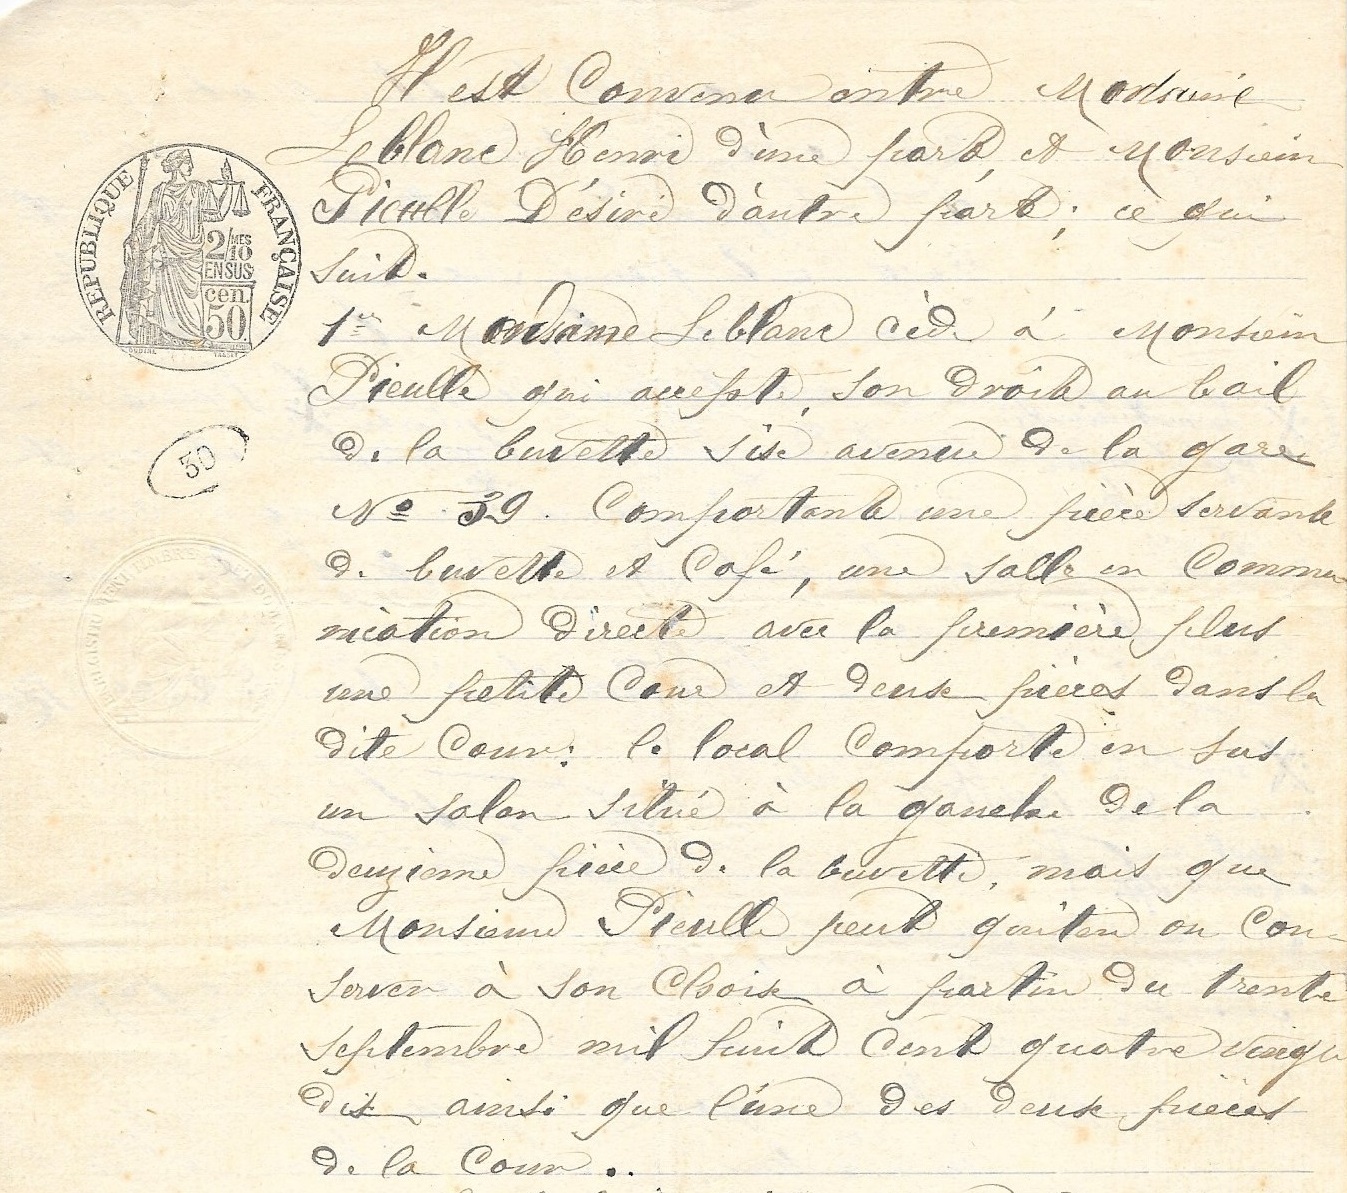 Il est Convenu entre Monsieur
Leblanc Henri d'une part et Monsieur
Pieulle Désiré d'autre part; ce qui
suit.
1er Monsieur Leblanc cède à Monsieur
Pieulle qui accepte, son droit au bail
de la buvette sise avenue de la gare
No 39. Comportant une pièce servant
de buvette et Café, une salle en Commu-
nication directe avec la première plus
une petite Cour et deux pièces dans la
dite Cour; le local Comporte en sus
un salon situé à la gauche de la
deuzième pièce de la buvette, mais que
Monsieur Pieulle peut quiter ou Con-
server à son Choix à partir du trente
septembre mil huit Cent quatre vingt
dix ainsi que l'une des deux pièces
de la Cour..
REPUBLIQUE FRANÇAISE
2/10 MES
EN SUS
cen.
50
OUDINÉ
30